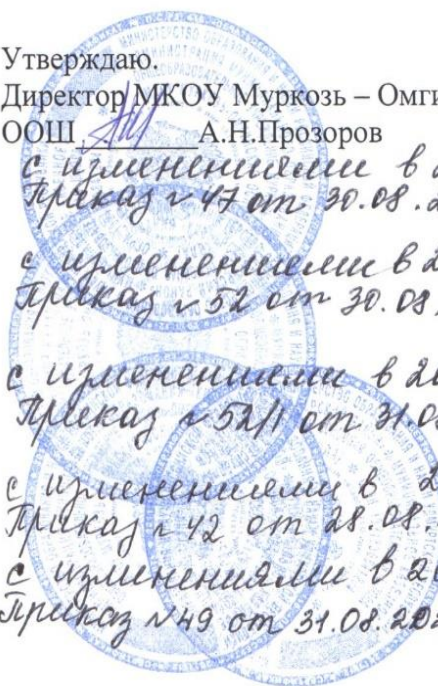 Утверждаю.
Директор МКОУ Муркозь – Омги
ООШ ________ А.Н.Прозоров
с изменениями в 2
Приказ № 47 от 30.08.2
с изменениями в 2
Приказ № 52 от 30.08.
с изменениями в 20
Приказ № 52/1 от 31.08
с изменениями в 2
Приказ № 42 от 28.08.
с изменениями в 20
Приказ №49 от 31.08.202